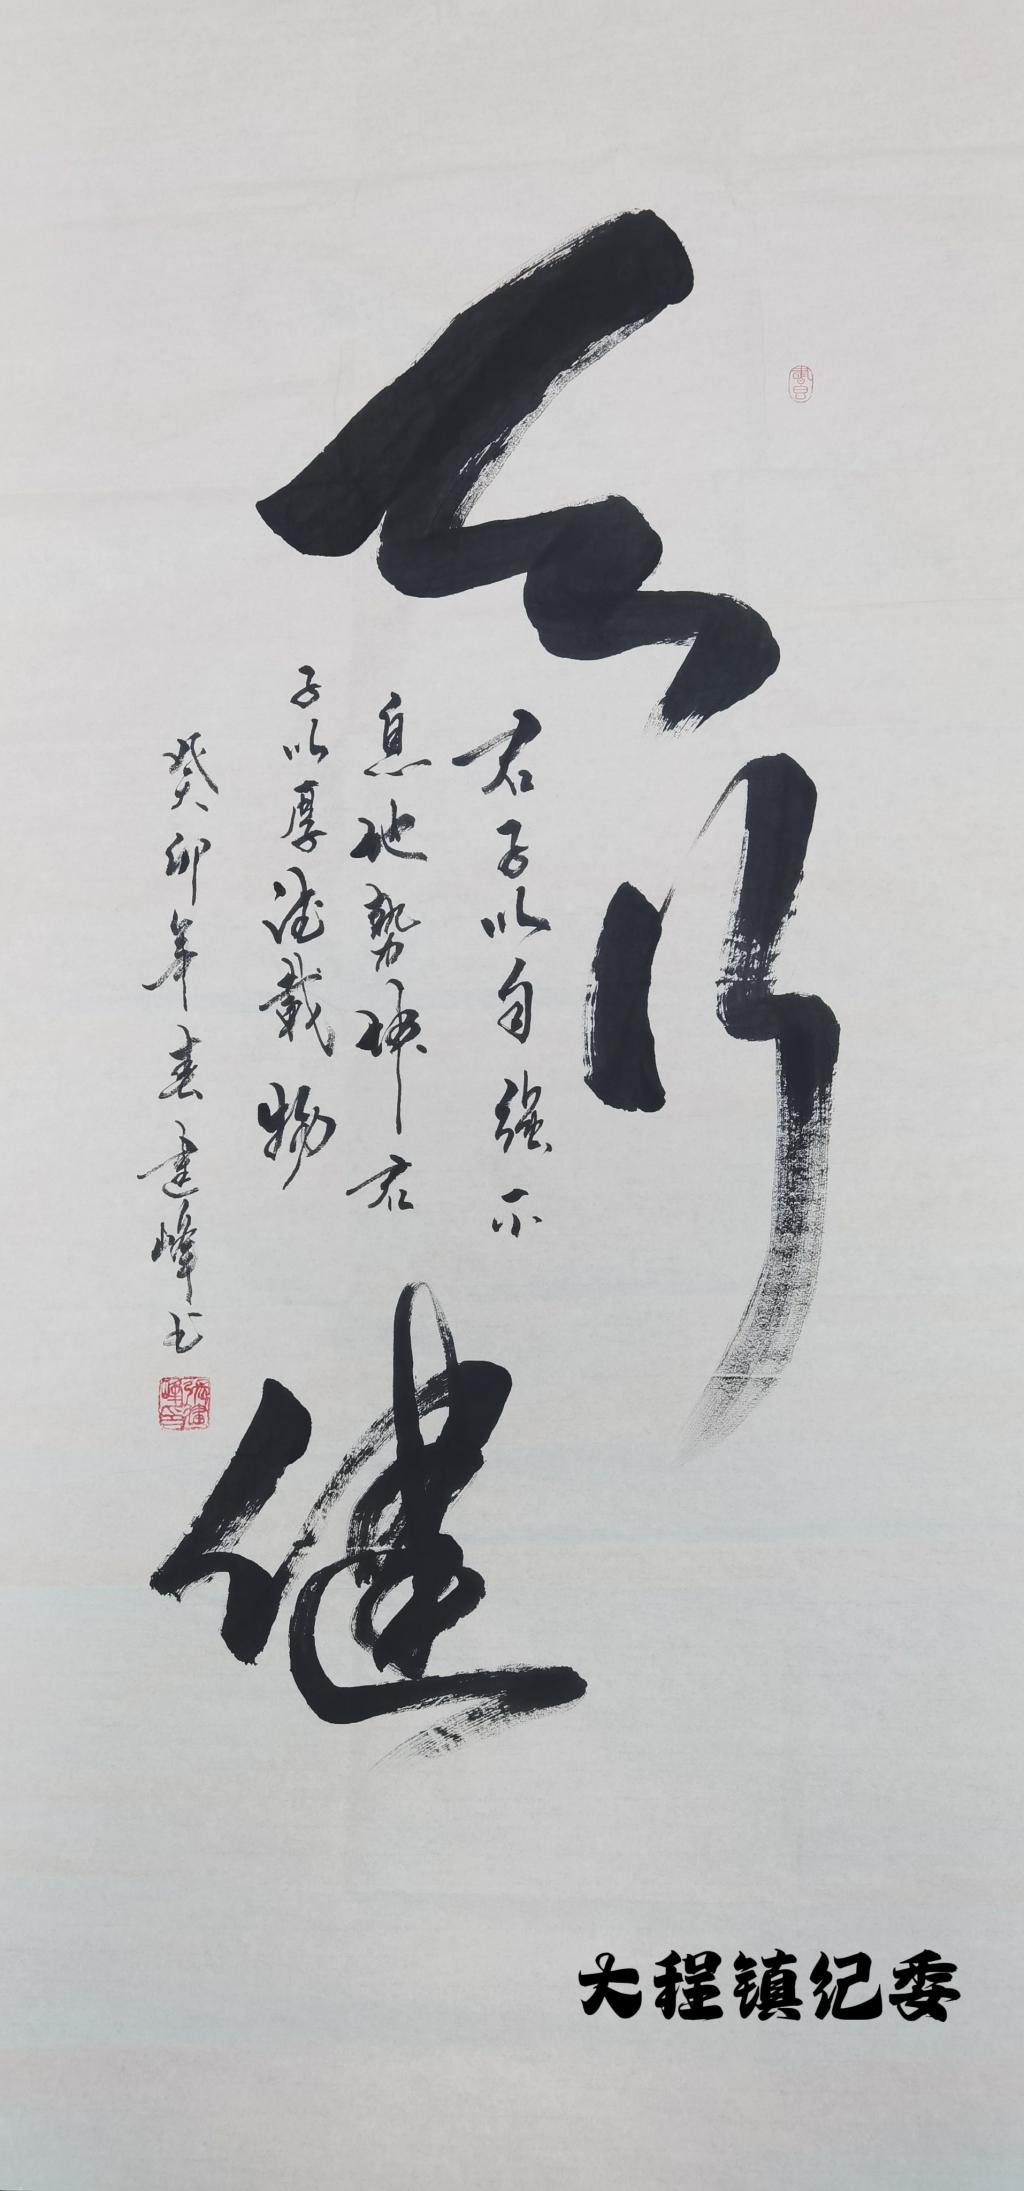 天行健
君子以自强不
息地势坤君
子以厚德载物
癸卯年春建峰书
张建峰印
大程镇纪委